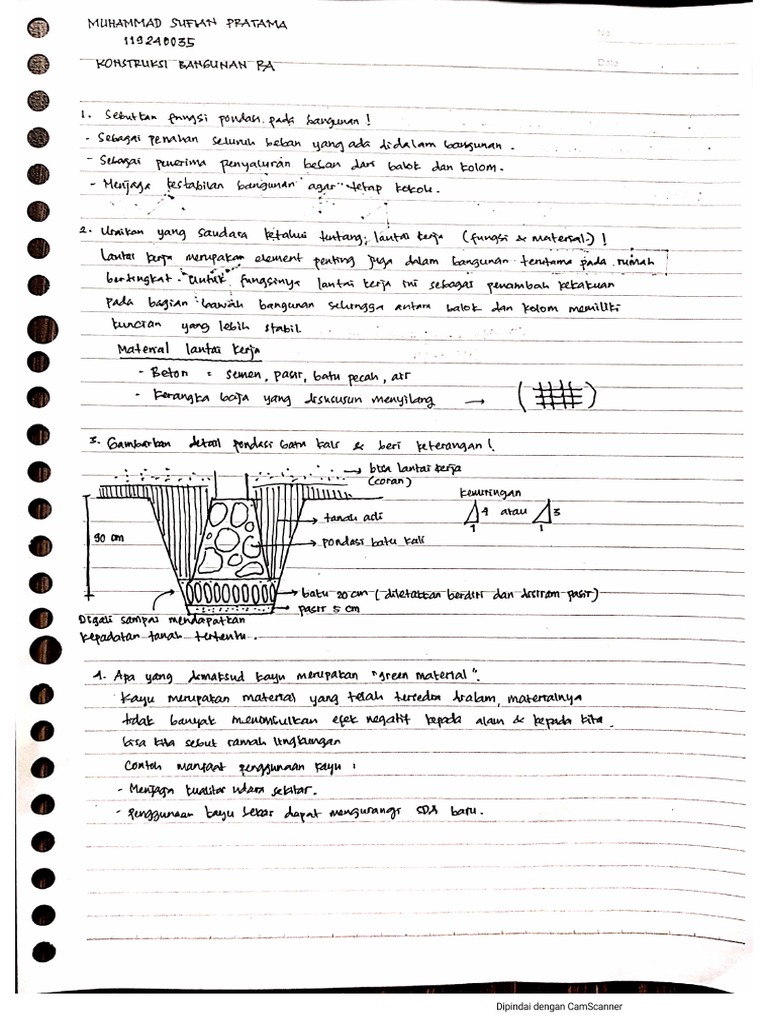 No
Date
MUHAMMAD SUFIAN PRATAMA
119240035
KONSTRUKSI BANGUNAN RA
1. Sebutkan fungsi pondasi pada bangunan!
- Sebagai penahan seluruh beban yang ada didalam bangunan.
- Sebagai penerima penyaluran beban dari balok dan kolom.
- Menjaga kestabilan bangunan agar tetap kokoh.
2. Uraikan yang saudara ketahui tentang lantai kerja (fungsi & material)!
lantai kerja merupakan element penting juga dalam bangunan terutama pada rumah
bertingkat. Untuk fungsinya lantai kerja ini sebagai penambah kekakuan
pada bagian bawah bangunan sehingga antara balok dan kolom memiliki
kuncian yang lebih stabil.
Material lantai kerja
- Beton = semen, pasir, batu pecah, air
- Kerangka baja yang disususun menyilang
3. Gambarkan detail pondasi batu kali & beri keterangan!
bisa lantai kerja
(coran)
kemiringan
4 atau 3
1 1
90 cm
tanah asli
pondasi batu kali
batu 20 cm (diletakkan berdiri dan disiram pasir)
pasir 5 cm
Digali sampai mendapatkan
kepadatan tanah tertentu.
4. Apa yang dimaksud kayu merupakan "green material".
Kayu merupakan material yang telah tersedia dialam, materialnya
tidak banyak menimbulkan efek negatif kepada alam & kepada kita
bisa kita sebut ramah lingkungan
Contoh manfaat penggunaan kayu :
- Menjaga kualitas udara sekitar.
- penggunaan kayu bekas dapat mengurangi SDA baru.
Dipindai dengan CamScanner